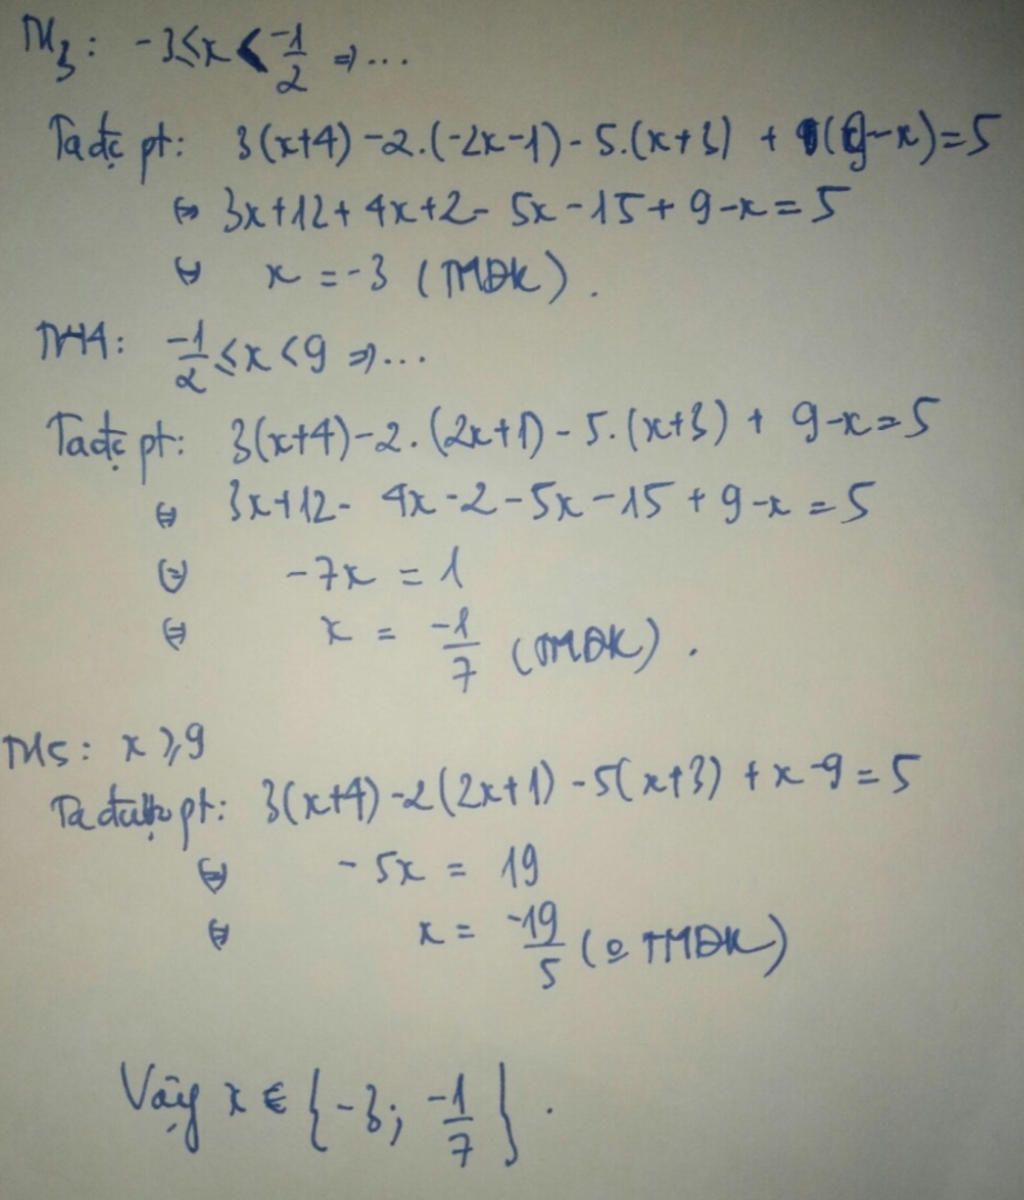 TH3: -3≤x<-1/2 ⇒...
Ta đc pt: 3(x+4)-2.(-2x-1)-5.(x+3) + (9-x)=5
⇔ 3x+12+4x+2-5x-15+9-x=5
⇔ x=-3 (TMĐK).
TH4: -1/2≤x<9 ⇒...
Ta đc pt: 3(x+4)-2.(2x+1)-5.(x+3)+9-x=5
⇔ 3x+12-4x-2-5x-15+9-x=5
⇔ -7x=1
⇔ x=-1/7 (TMĐK).
TH5: x≥9
Ta được pt: 3(x+4)-2(2x+1)-5(x+3)+x-9=5
⇔ -5x=19
⇔ x=-19/5 (o TMĐK)
Vậy x∈{-3; -1/7}.